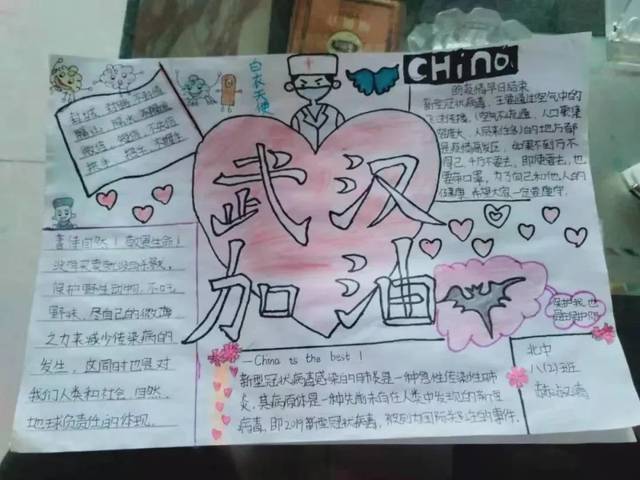 CHina
白衣天使
武汉
加油
愿疫情早日结束
新型冠状病毒，主要通过空气中的
飞沫传播，空气不流通，人口聚集
密度大，人员来往多的地方都
是疫情高发区，如果不到万不
得已，千万不要去，即使要去，也
要带口罩，为了自己和他人的
健康，希望大家一定要遵守。
善待自然！敬畏生命！
没有买卖就没有杀戮，
保护野生动物，不吃
野味，尽自己的微薄
之力来减少传染病的
发生，这同时也是对
我们人类和社会，自然、
地球负责任的体现。
保护我，也
是保护你
—China is the best！
新型冠状病毒感染的肺炎是一种急性传染性肺
炎，其病原体是一种先前未在人类中发现的新型
病毒，即2019新型冠状病毒，被列为国际关注的事件。
北中
八(2)班